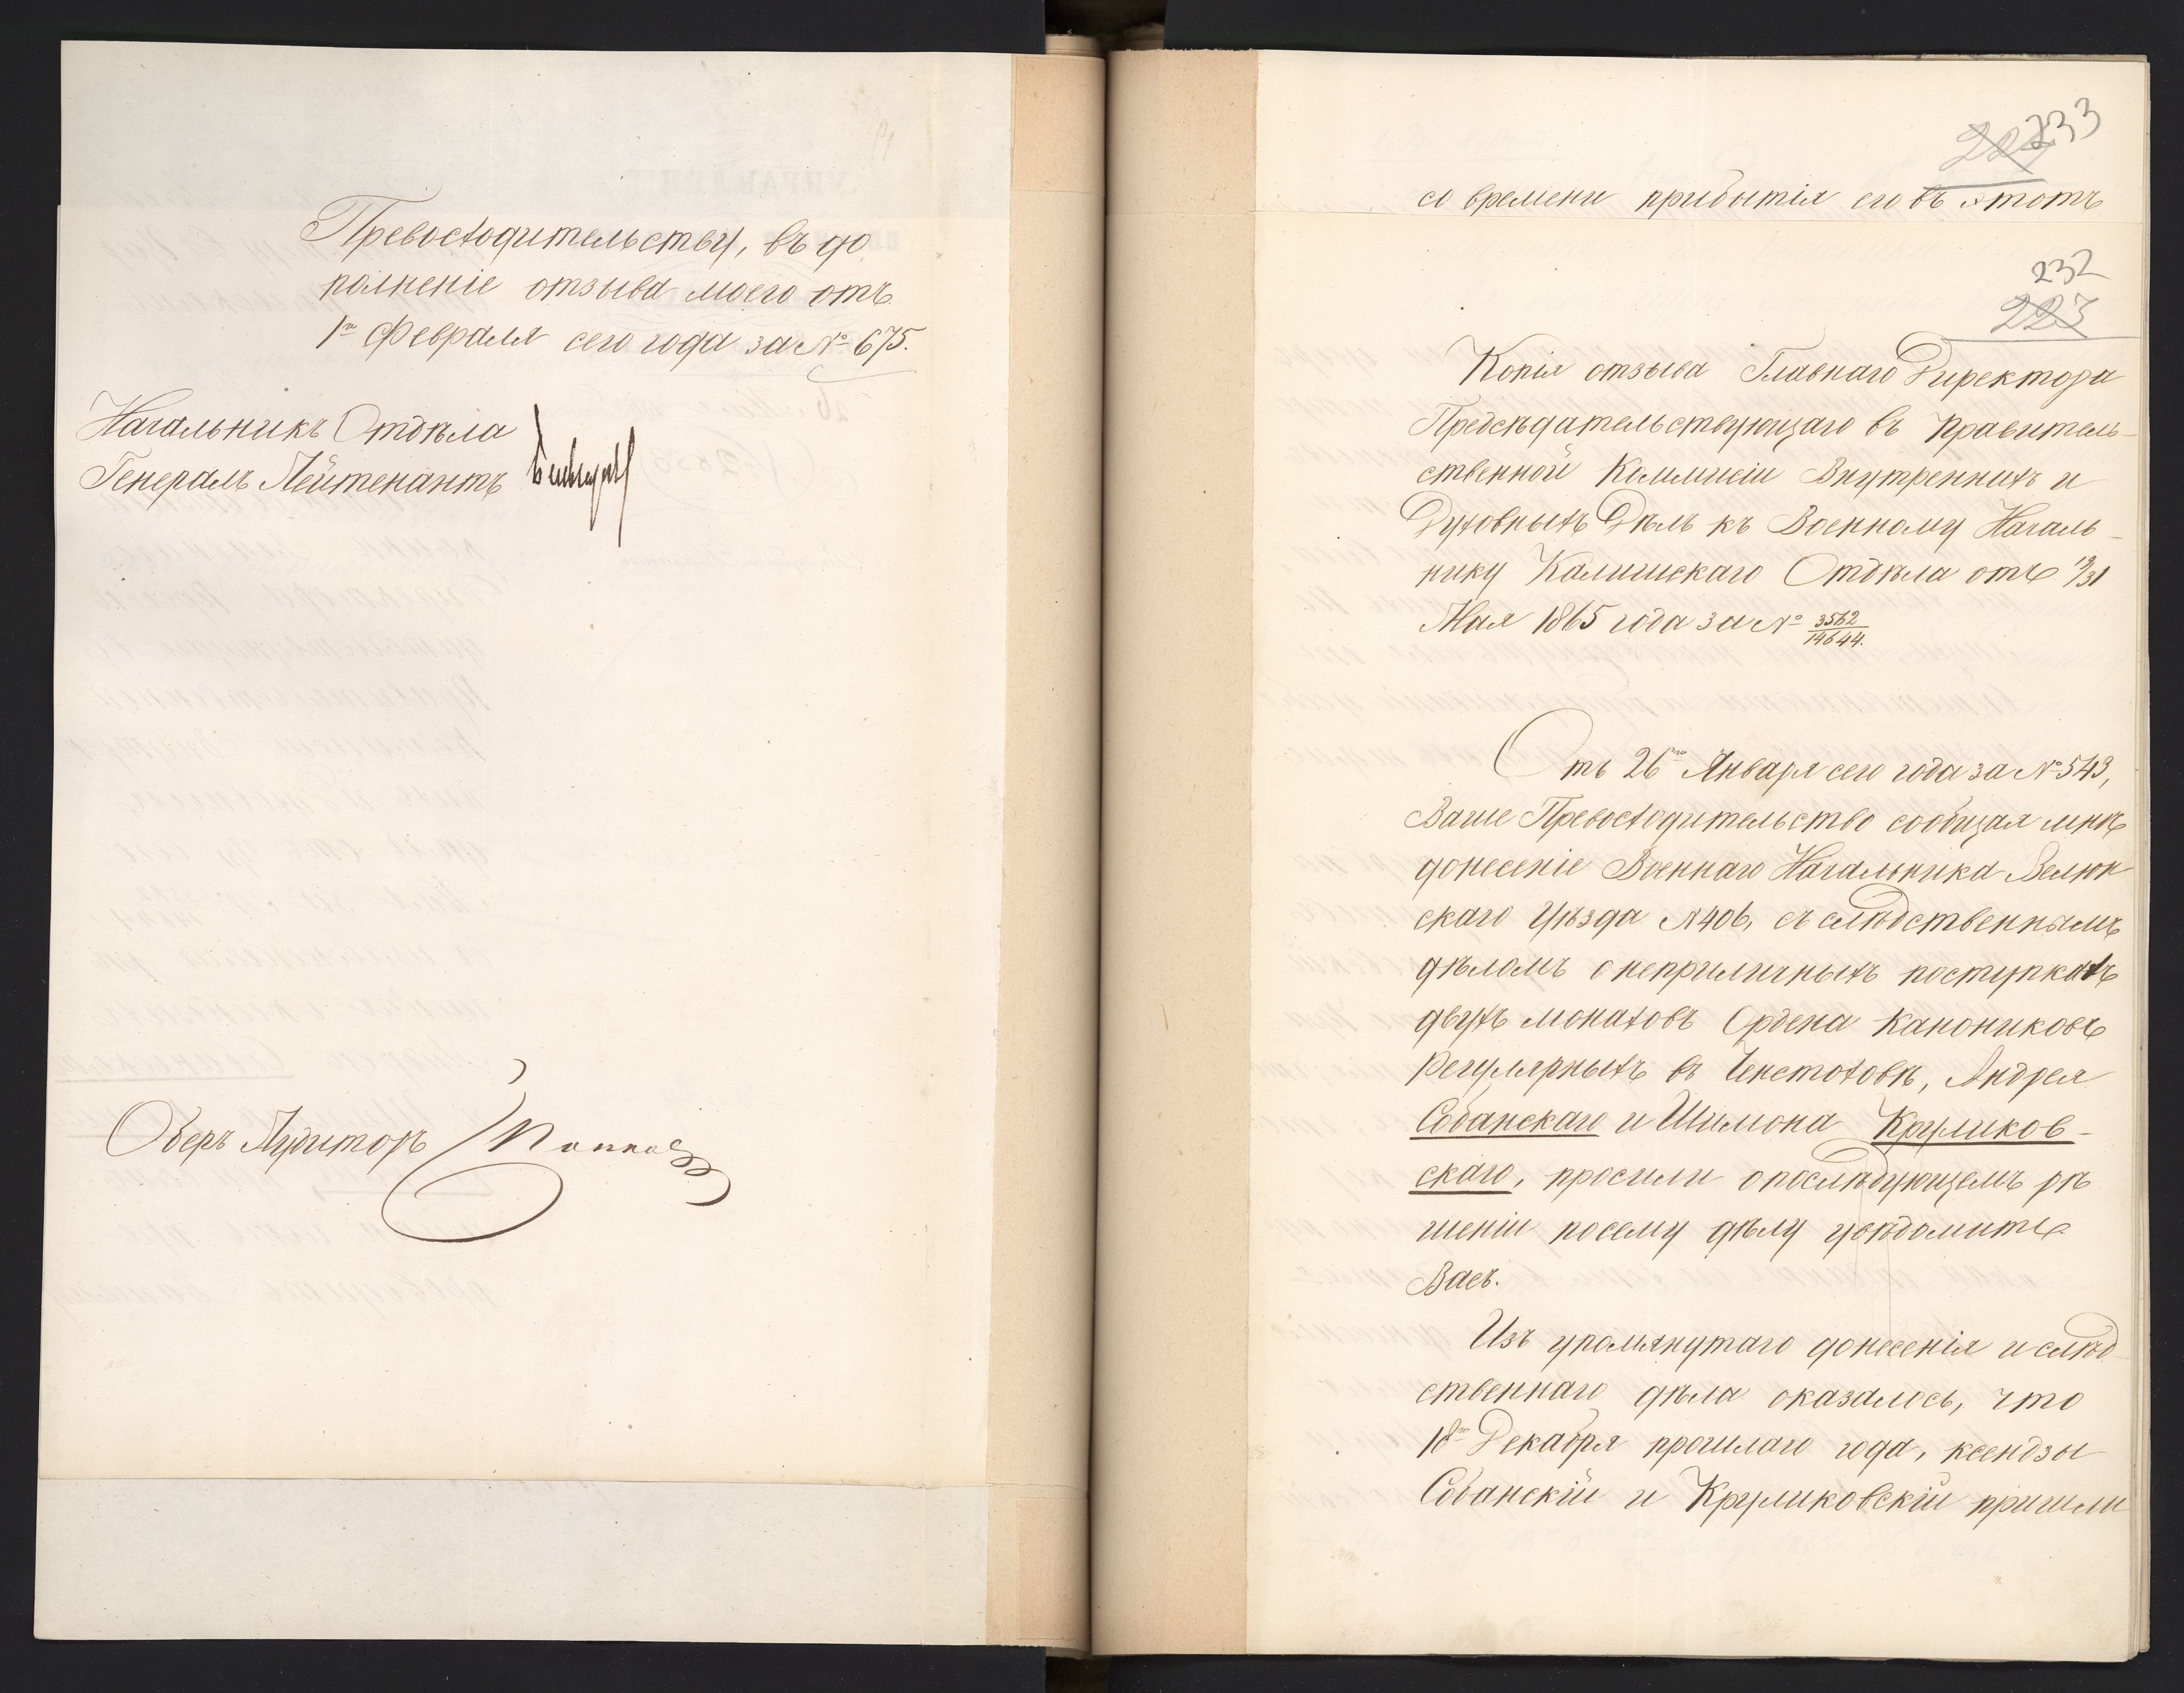 Превосходительству, въ до
полненіе отзыва моего отъ
1го Февраля сего года за № 675.
Начальникъ Отдѣла
Генералъ Лейтенантъ
Оберъ Аудиторъ
227 233
со времени прибытія его въ этотъ
232
223
Копія отзыва Главнаго Директора
Предсѣдательствующаго въ Правитель-
ственной Коммисіи Внутреннихъ и
Духовныхъ Дѣлъ къ Военному Началь-
нику Калишскаго Отдѣла отъ 19/31
Мая 1865 года за № 3562/14644.
Отъ 26го Января сего года за № 543,
Ваше Превосходительство сообщая мнѣ
донесеніе Военнаго Начальника Велюн
скаго Уѣзда № 406, съ слѣдственнымъ
дѣломъ о неприличныхъ поступкахъ
двухъ монаховъ Ордена Канониковъ
Регулярныхъ въ Ченстоховѣ, Андрея
Собанскаго и Шимона Круликов-
скаго, просили о послѣдующемъ рѣ
шеніи по сему дѣлу увѣдомить
Васъ.
Изъ упомянутаго донесенія и слѣд
ственнаго дѣла оказалось, что
18го Декабря прошлаго года, ксендзы
Собанскій и Круликовскій пришли